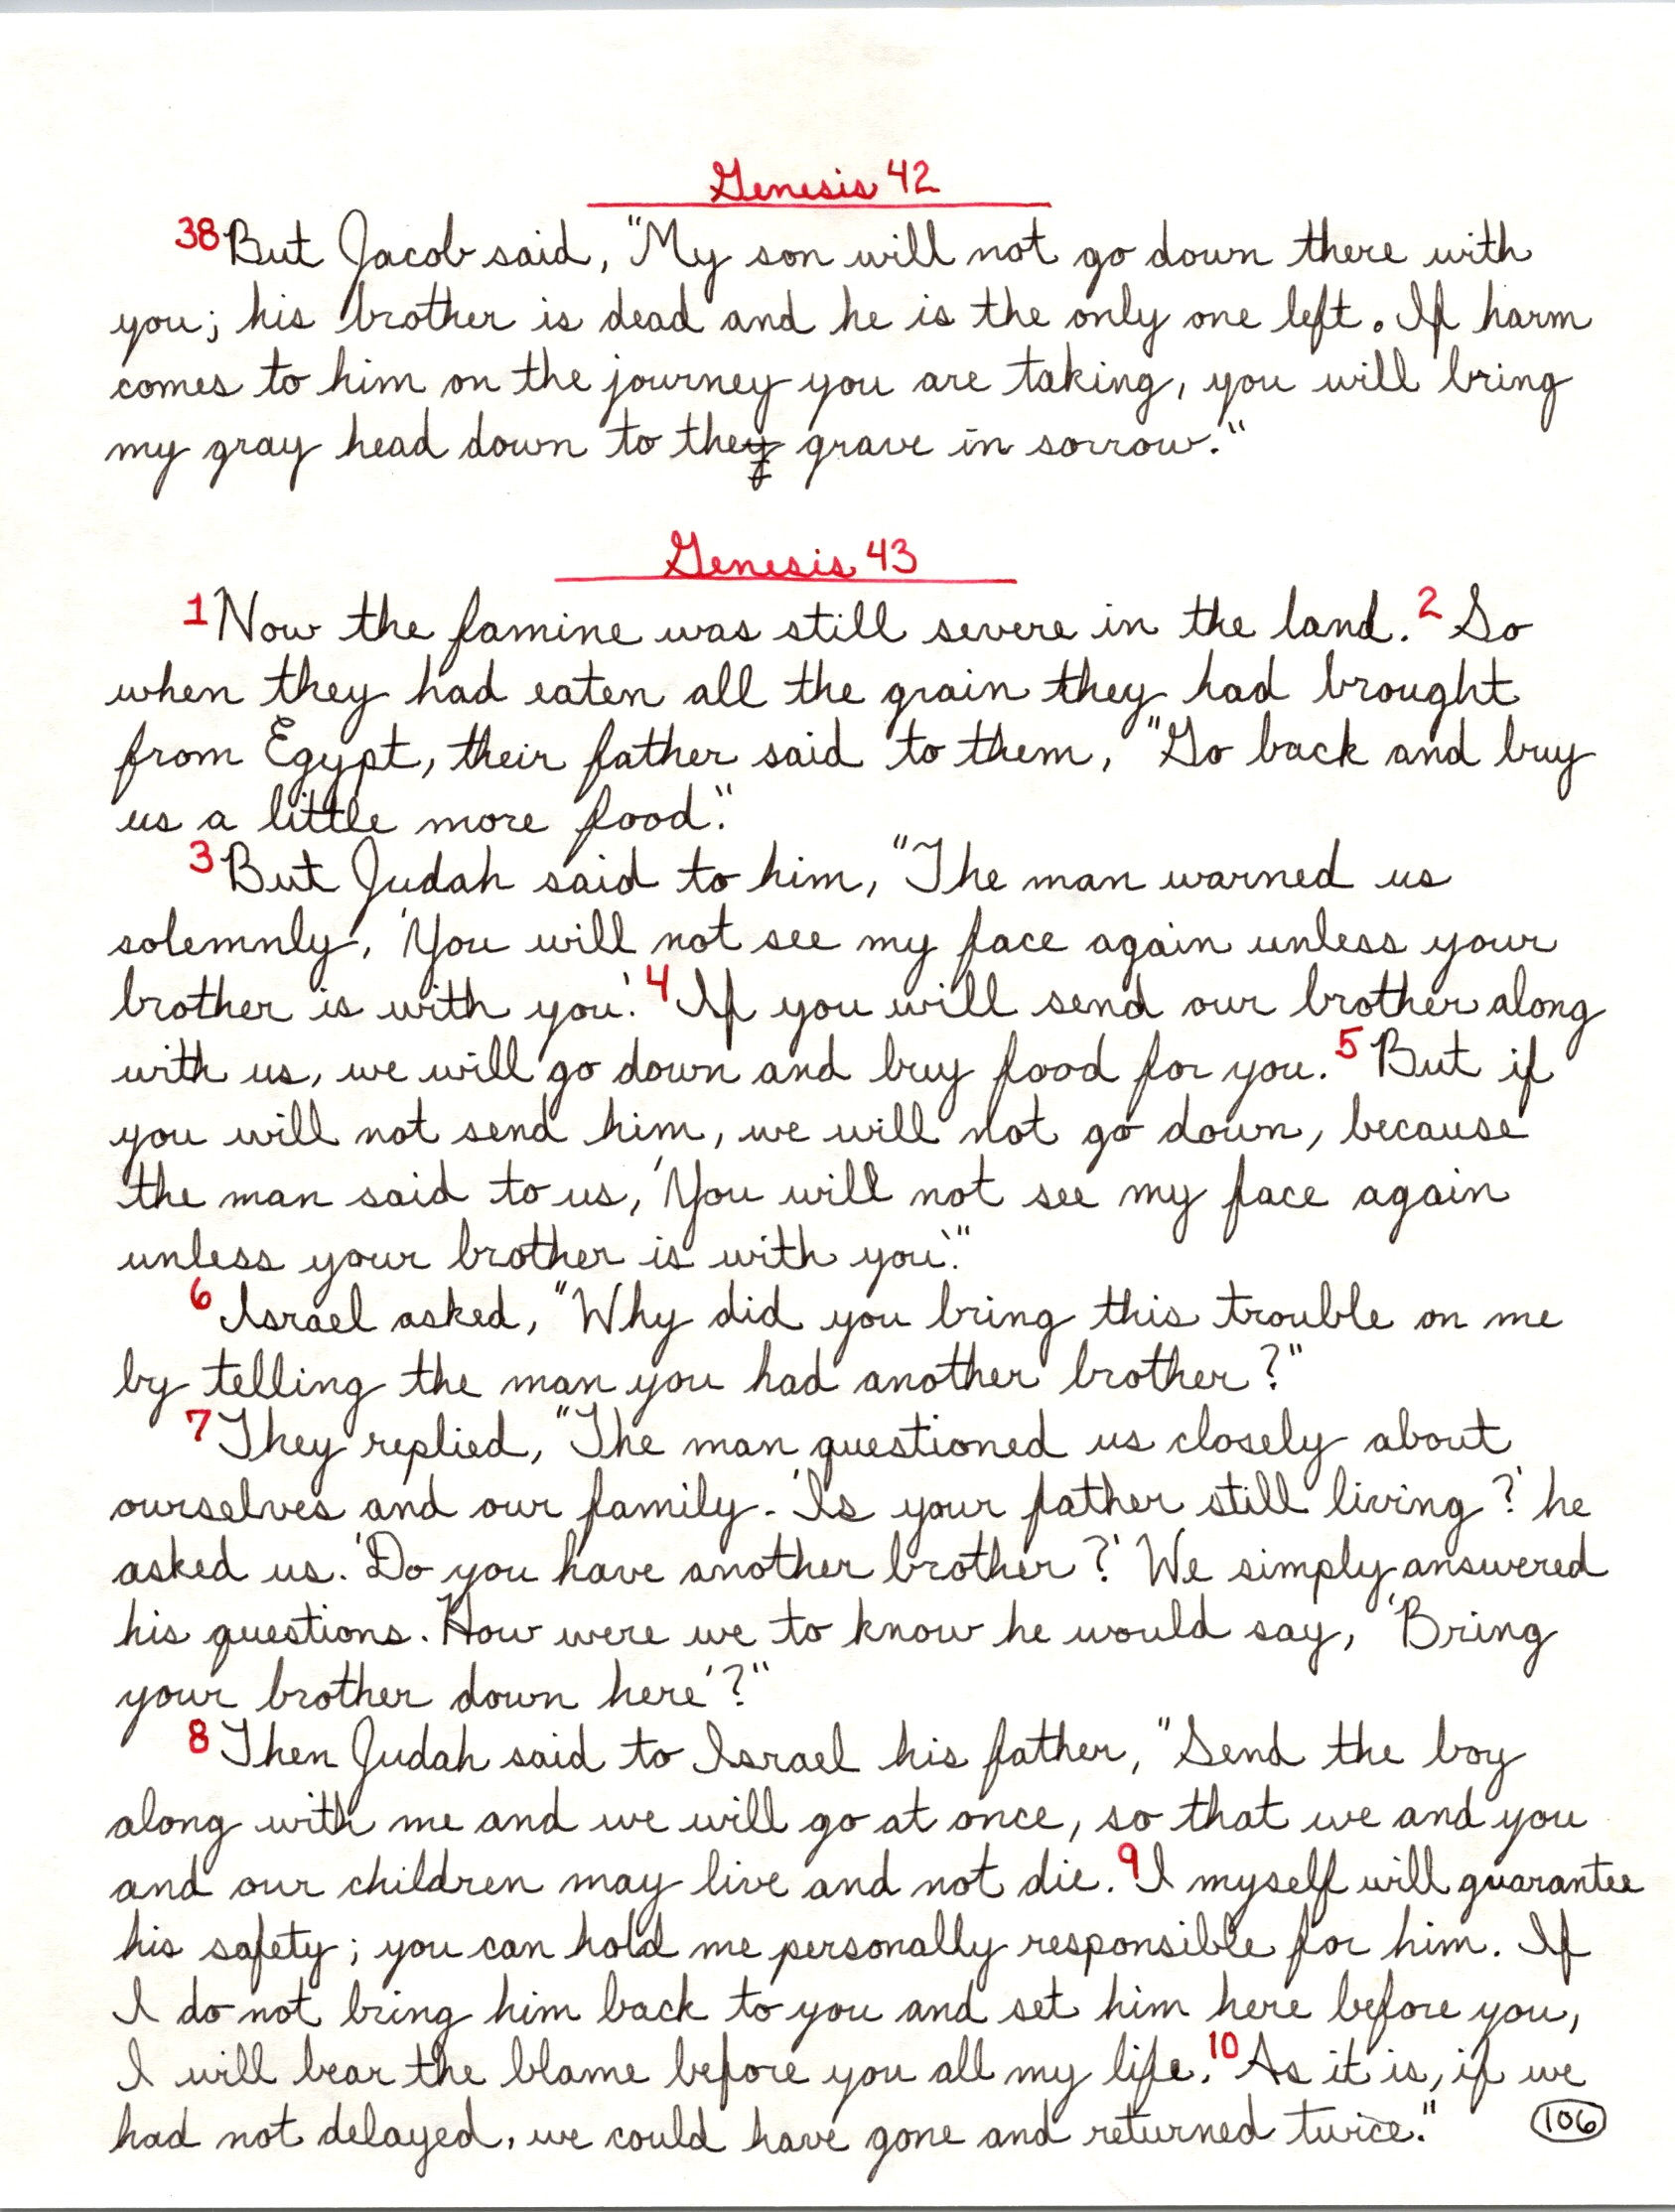 Genesis 42
38 But Jacob said, "My son will not go down there with
you; his brother is dead and he is the only one left. If harm
comes to him on the journey you are taking, you will bring
my gray head down to the grave in sorrow."
Genesis 43
1 Now the famine was still severe in the land. 2 So
when they had eaten all the grain they had brought
from Egypt, their father said to them, "Go back and buy
us a little more food."
3 But Judah said to him, "The man warned us
solemnly, 'You will not see my face again unless your
brother is with you.' 4 If you will send our brother along
with us, we will go down and buy food for you. 5 But if
you will not send him, we will not go down, because
the man said to us, 'You will not see my face again
unless your brother is with you.'"
6 Israel asked, "Why did you bring this trouble on me
by telling the man you had another brother?"
7 They replied, "The man questioned us closely about
ourselves and our family. 'Is your father still living?' he
asked us. 'Do you have another brother?' We simply answered
his questions. How were we to know he would say, 'Bring
your brother down here'?"
8 Then Judah said to Israel his father, "Send the boy
along with me and we will go at once, so that we and you
and our children may live and not die. 9 I myself will guarantee
his safety; you can hold me personally responsible for him. If
I do not bring him back to you and set him here before you,
I will bear the blame before you all my life. 10 As it is, if we
had not delayed, we could have gone and returned twice."
106